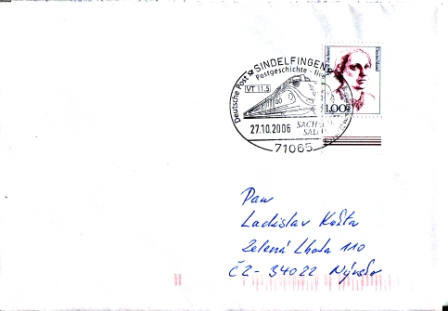 Deutsche Post SINDELFINGEN
Postgeschichte - live
VT 11.5
1,00
27.10.2006
71065
Pan
Ladislav Košta
Zelená Lhota 110
CZ - 34022 Nýrsko